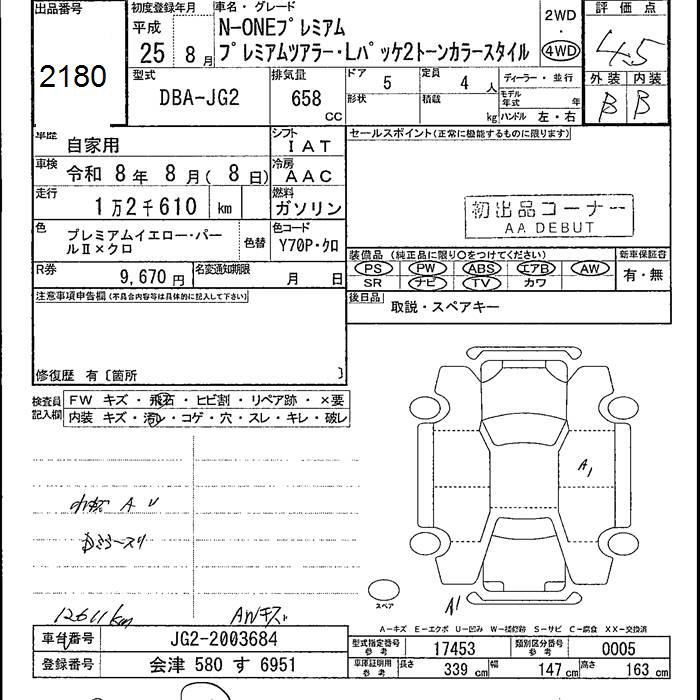 出品番号
2180
初度登録年月
平成
25 8月
車名・グレード
N-ONEプレミアム
プレミアムツアラー・Lパッケ2トーンカラースタイル
2WD
・
4WD
評価点
4.5
外装 内装
B B
型式
DBA-JG2
排気量
658
cc
ドア 5
形状
定員 4 人
積載 kg
ディーラー・並行
モデル年式 年
ハンドル 左・右
車歴 自家用
シフト IAT
車検 令和 8年 8月(8日)
冷房 AAC
走行 1万2千610 km
燃料 ガソリン
色 プレミアムイエロー・パー
ルⅡ×クロ
色替
色コード
Y70P・クロ
R券 9,670円
名変通知期限 月 日
セールスポイント(正常に機能するものに限ります)
初出品コーナー
AA DEBUT
装備品(純正品に限り○をつけてください)
新車保証書
PS PW ABS エアB AW
SR ナビ TV カワ
有・無
後日品
取説・スペアキー
注意事項申告欄(不具合内容等は具体的に記入して下さい)
修復歴 有〔箇所 〕
検査員
記入欄
FW キズ・飛石・ヒビ割・リペア跡・×要
内装 キズ・汚レ・コゲ・穴・スレ・キレ・破レ
A1
小キズ A U
12611km
A1
スペア
A-キズ E-エクボ U-凹ミ W-補修跡 S-サビ C-腐食 XX-交換済
車台番号 JG2-2003684
登録番号 会津 580 す 6951
型式指定番号
参考
17453
類別区分番号
参考
0005
車庫証明用
参考
長さ 339 cm 幅 147 cm 高さ 163 cm